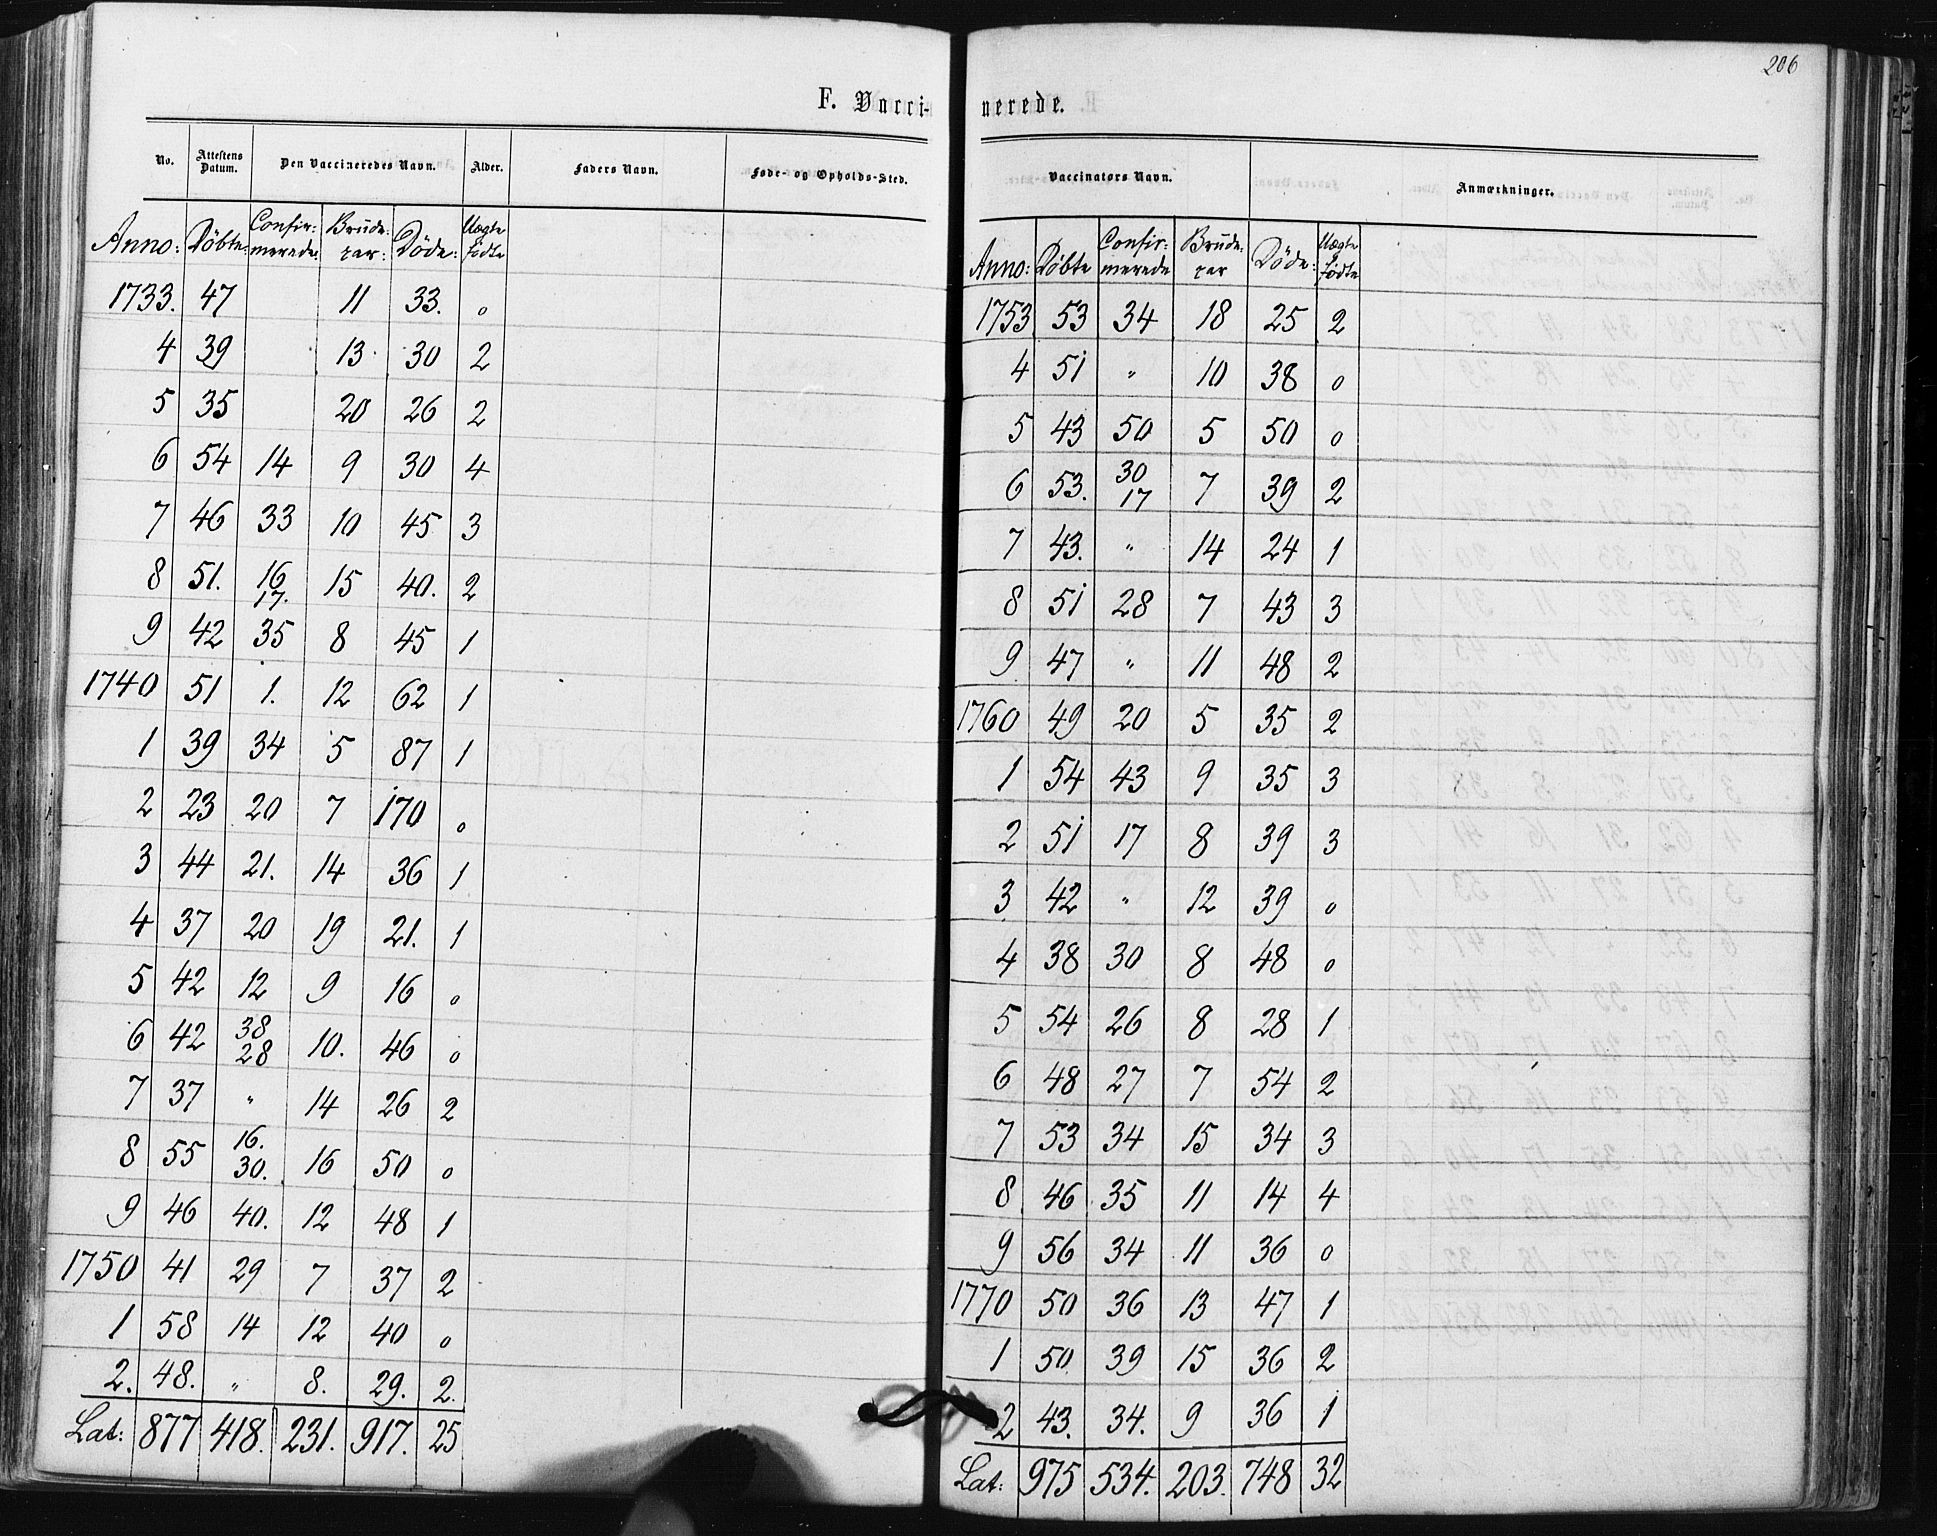 206
F. Vacci-
No. Attestens Datum. Den Vaccineredes Navn. Alder. Faders Navn. Føde- og Opholds-Sted.
Anno: Döbte: Confir- merede: Brüde- par: Döde: Uægte födte
1733. 47 11 33. 0
4 39 13 30 2
5 35 20 26 2
6 54 14 9 30 4
7 46 33 10 45 3
8 51. 16 17. 15 40. 2
9 42 35 8 45 1
1740 51 1. 12 62 1
1 39 34 5 87 1
2 23 20 7 170 0
3 44 21. 14 36 1
4 37 20 19 21. 1
5 42 12 9 16 0
6 42 38 28 10. 46 0
7 37 " 14 26 2
8 55 16. 30. 16 50 0
9 46 40. 12 48 1
1750 41 29 7 37 2
1 58 14 12 40 0
2. 48. " 8. 29. 2.
Lat: 877 418. 231. 917. 25
nerede.
Vaccinatørs Navn. Anmærkninger.
Anno: Döbte Confir- merede Brüde- par Döde: Uægte födte
1753 53 34 18 25 2
4 51 " 10 38 0
5 43 50 5 50 0
6 53. 30 17 7 39 2
7 43. " 14 24 1
8 51 28 7 43 3
9 47 " 11 48 2
1760 49 20 5 35 2
1 54 43 9 35 3
2 51 17 8 39 3
3 42 " 12 39 0
4 38 30 8 48 0
5 54 26 8 28 1
6 48 27 7 54 2
7 53 34 15 34 3
8 46 35 11 14 4
9 56 34 11 36 0
1770 50 36 13 47 1
1 50 39 15 36 2
2 43. 34. 9 36 1
Lat: 975 534. 203. 748 32